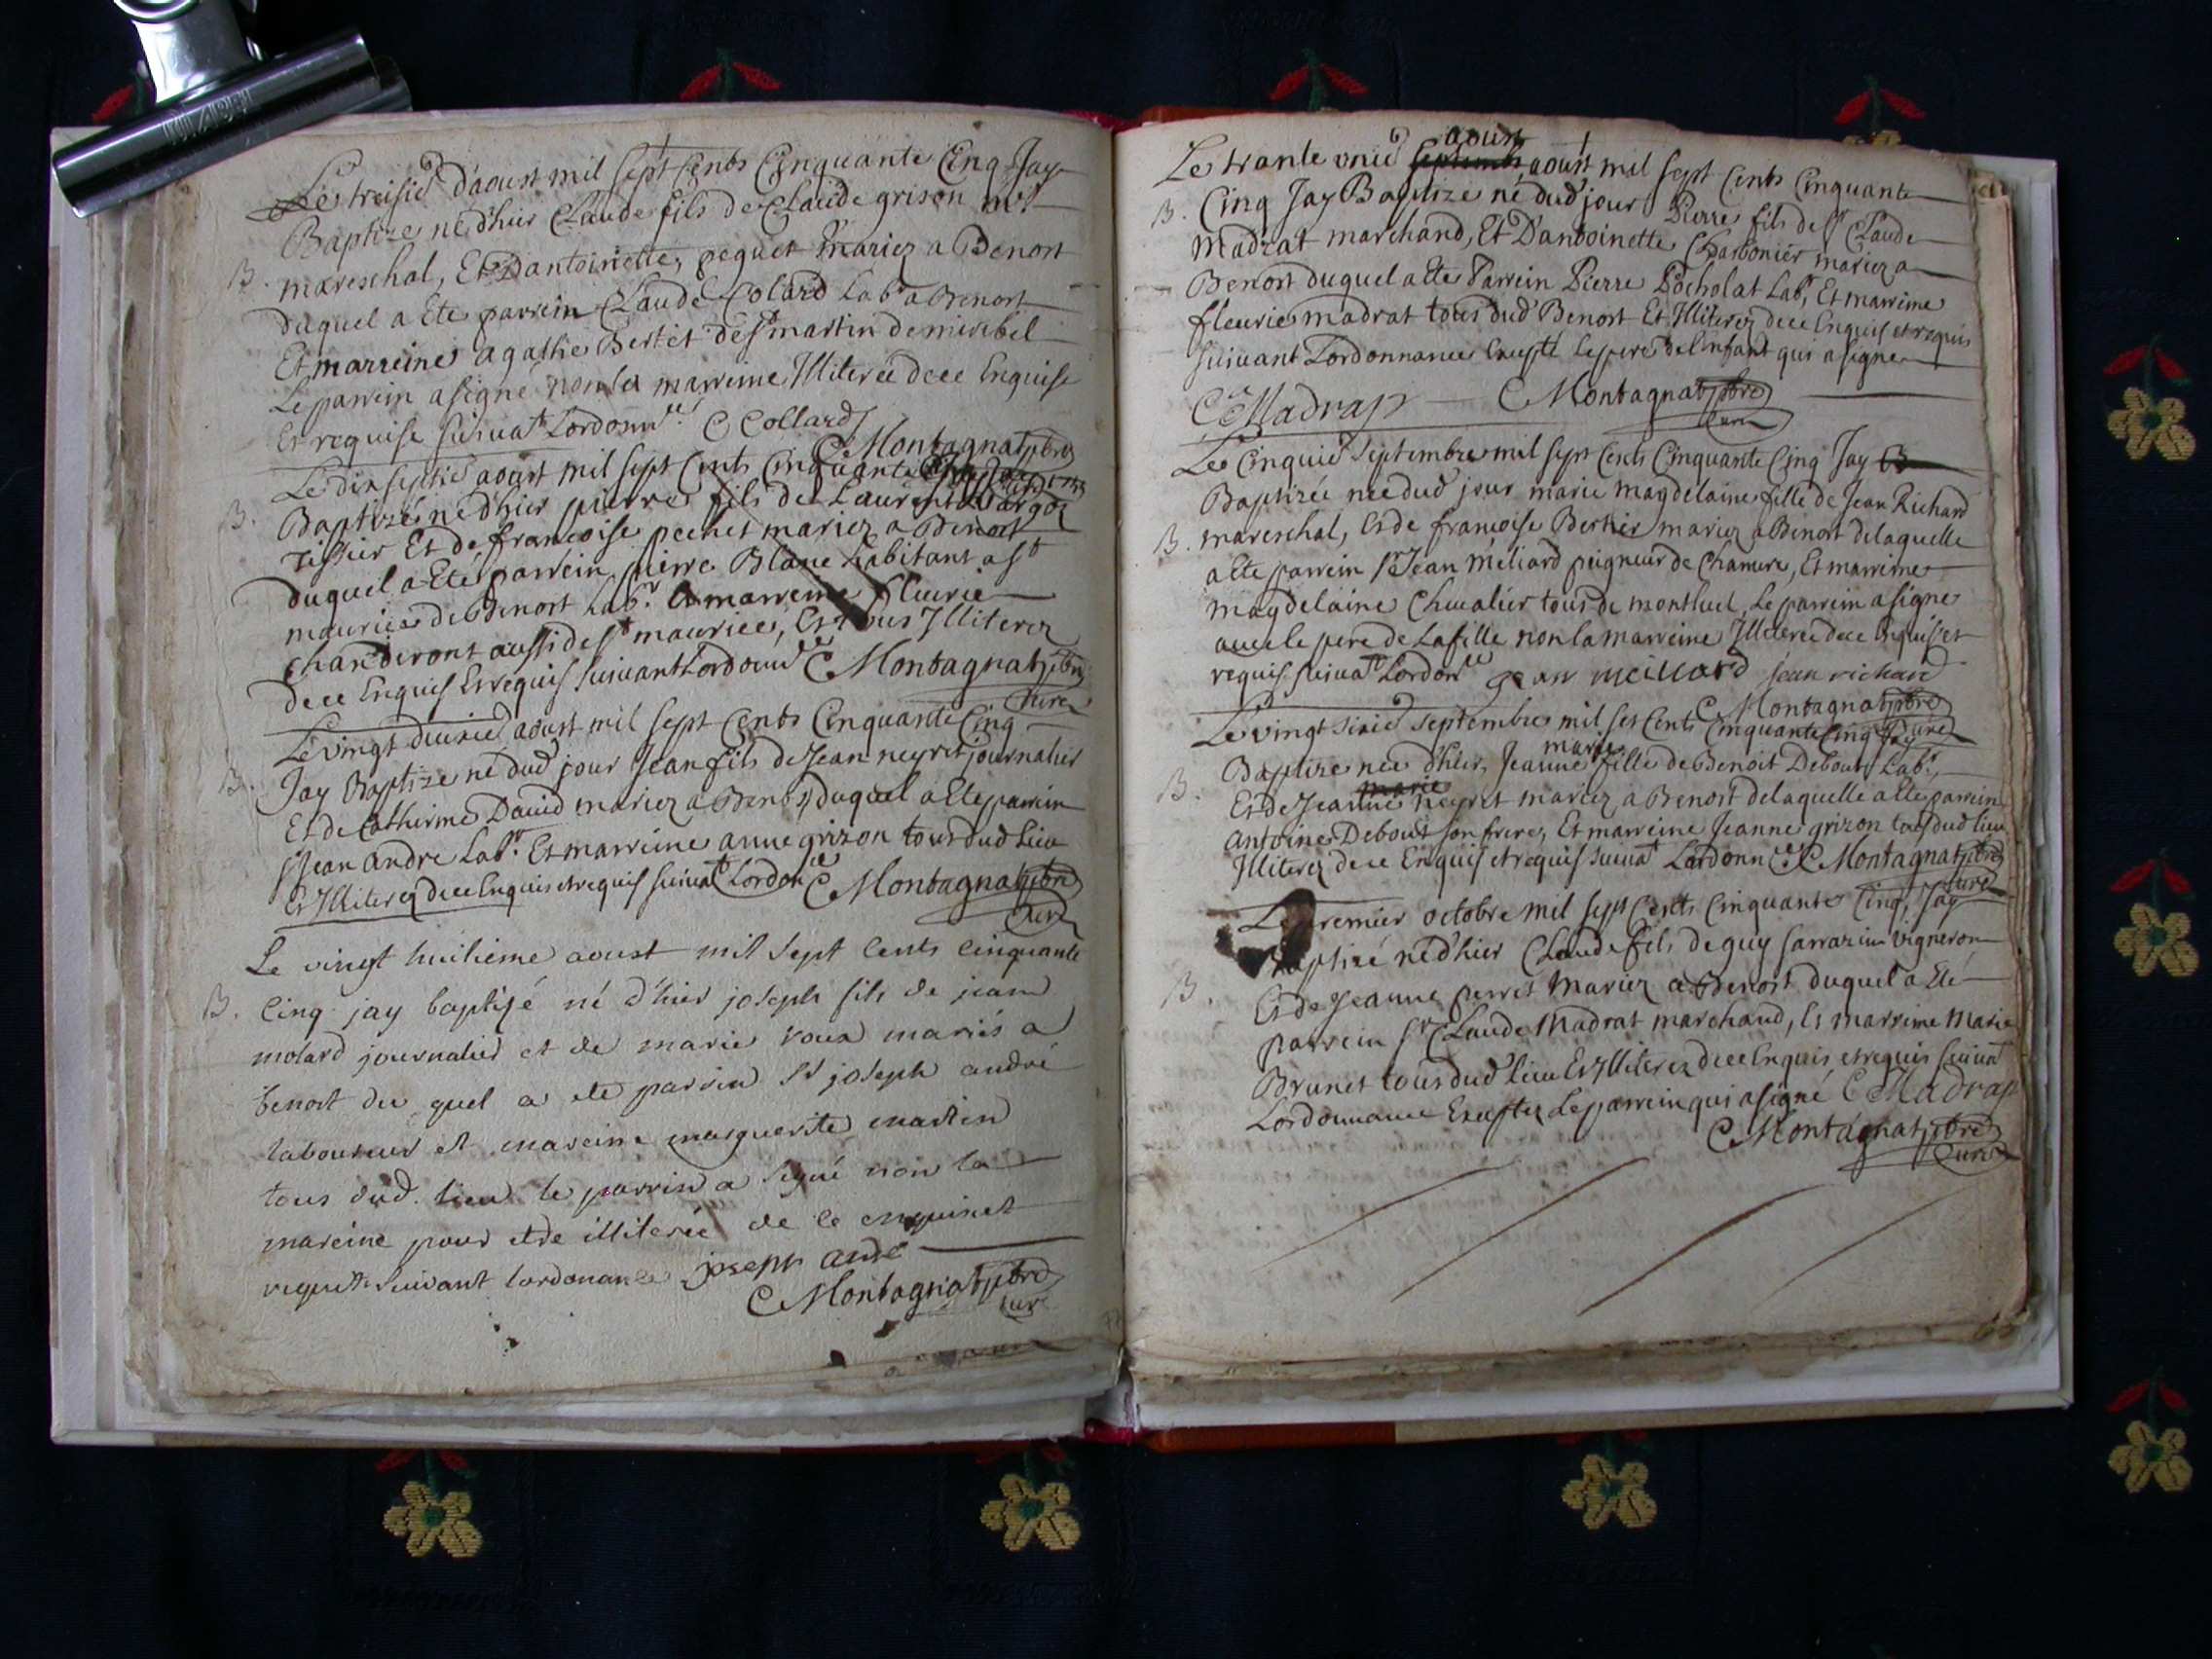 Le treisie d'aoust mil sept cents Cinquante Cinq Jay
Baptize né d'hier Claude fils de Claude grison
B. mareschal, Et Dantoinette, peguet mariez a Benost
duquel a Ete parrein Claude Colard Labr a Benost
Et marreine agathe Bertet de St martin de miribel
Le parrein a signé non la marreine Illiteree de ce Enquise
Et requise suivat Lordonnce C Collard
C Montagnat ptre
Le dix septie aoust mil sept Cents Cinquante
B. Baptizé né d'hier pierre fils de Laurent
tissier Et de francoise pechet mariez a Benost
duquel a Ete parrein pierre Blanc habitant a St
maurice de Benost Labr. Et marreine fleurie
chanderont aussi de St maurice, Et tous Illiterez
de ce Enquis Et requis suivant Lordonnce C Montagnat ptre
Curé
Le vingt deuxie aoust mil sept Cents Cinquante Cinq
B. Jay Baptize né dud jour Jean fils de Jean neyret journalier
Et de Catherine David mariez a Benost, duquel a Ete parrein
Jean andre Labr. Et marreine anne grizon tous dud Lieu
Et Illiterez de ce Enquis et requis suivat Lordonce C Montagnat ptre
Curé
Le vingt huitieme aoust mil sept cents cinquante
B. cinq jay baptizé né d'hier joseph fils de jean
molard journalier et de marie roux mariés a
benost du quel a ete parrein sr joseph andré
laboureur et mareine marguerite martin
tous dud. lieu le parrein a signé non la
mareine pour etre illiterée de ce enquise et
requise suivant lordonance joseph andre
C Montagnat ptre
curé
aoust
Le trante unie septembre aoust mil sept Cents Cinquante
B. Cinq Jay Baptize né dud jour Pierre fils de Sr Claude
Madrat marchand, Et Dantoinette Charbonier mariez a
Benost duquel a Ete Parrein Pierre Pocholat Labr, Et marreine
fleurie madrat tous dud Benost Et Illiterez de ce Enquis et requis
suivant Lordonnance Excepté le pere de Lenfant qui a signe
C Madrap C Montagnat ptre
Curé
Le Cinquie Septembre mil sept Cents Cinquante Cinq Jay
Baptizée née dud jour marie magdelaine fille de Jean Richard
B. mareschal, Et de francoise Bernier mariez a Benost de laquelle
a Ete parrein Sr Jean meliard peigneur de Chanvre, Et marreine
magdelaine Chevalier tous de montluel, Le parrein a signe
avec le pere de La fille non la marreine Illiteree de ce Enquis et
requis suivat Lordonce jean meillard jean richard
C Montagnat ptre
Curé
Le vingt sixie septembre mil set Cents Cinquante Cinq Jay
marie
B. Baptize née d'hier, Jeanne fille de Benoit Debout Labr,
marie
Et de Jeanne neyret mariez a Benost de laquelle a Ete parrein
antoine Debout son frere, Et marreine Jeanne grizon tous dud lieu
Illiterez de ce Enquis et requis suivat Lordonnce C Montagnat ptre
Curé
Le premier octobre mil sept Cents Cinquante Cinq, Jay
Baptizé né d'hier Claude fils de guy sarrazin vigneron
B. Et de Jeanne perret Mariez a Benost duquel a Eté
parrein Sr Claude Madrat marchand, Et marreine Marie
Brunet tous dud lieu Et Illiterez de ce Enquis, et requis suivat
Lordonnance Exceptez Le parrein qui a signé C Madrap
C Montagnat ptre
Curé